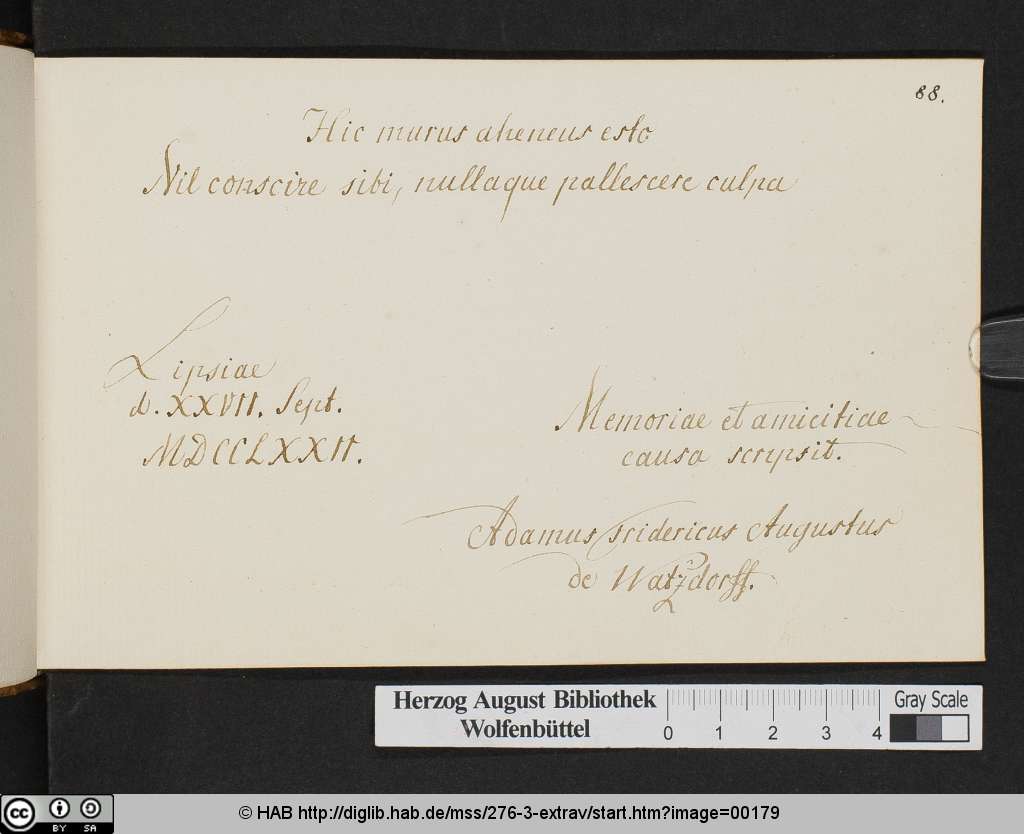 88.
Hic murus aheneus esto
Nil conscire sibi, nullaque pallescere culpa
Lipsiae
d. XXVII. Sept.
MDCCLXXII.
Memoriae et amicitiae
causa scripsit.
Adamus Fridericus Augustus
de Watzdorff.
Herzog August Bibliothek
Wolfenbüttel
0 1 2 3 4
Gray Scale
cc BY SA
© HAB http://diglib.hab.de/mss/276-3-extrav/start.htm?image=00179